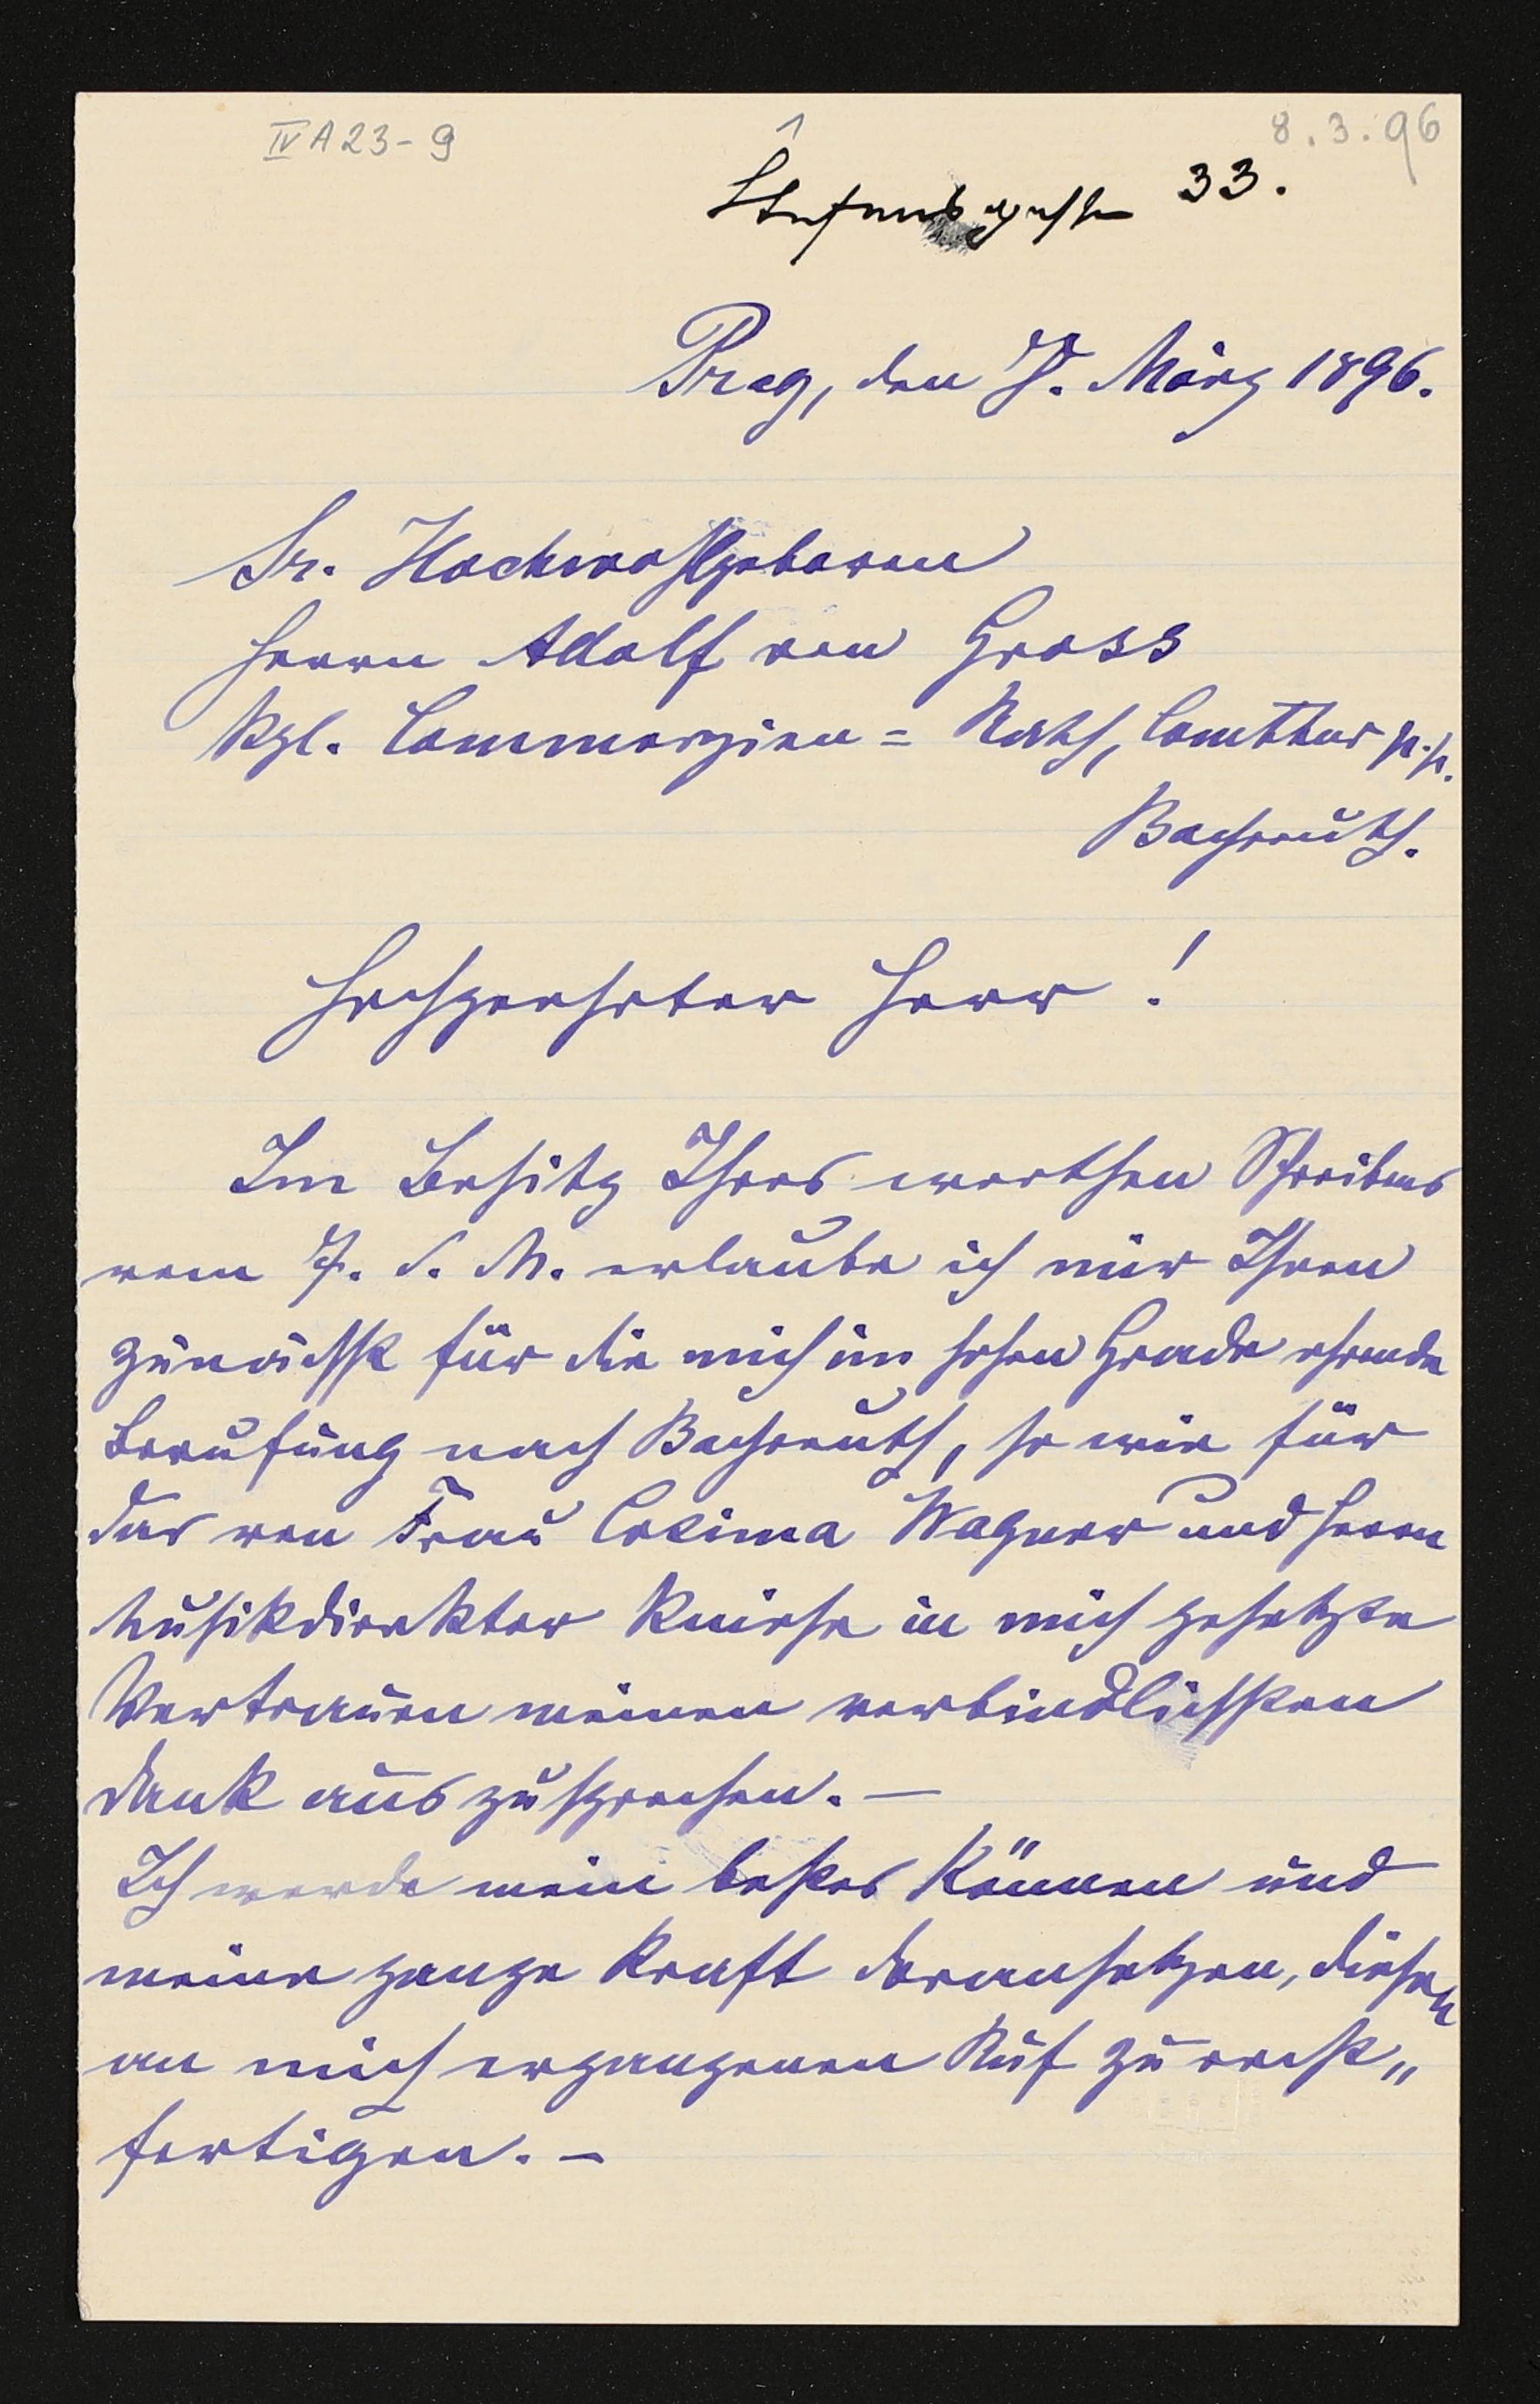 IV A 23-9
8.3.96
Stefansgasse 33.
Prag, den 8. März 1896.
Sr. Hochwohlgeboren
Herrn Adolf von Gross
Kgl. Commerzien= Rath, Comthur p.p.
Bayreuth.
Hochgeehrter Herr!
Im Besitz Ihres werthen Schreibens
vom 7. d. M. erlaube ich mir Ihnen
zunächst für die mich im hohen Grade ehrende
Berufung nach Bayreuth, so wie für
das von Frau Cosima Wagner und Herrn
Musikdirektor Kniese in mich gesetzte
Vertrauen meinen verbindlichsten
Dank auszusprechen. —
Ich werde mein bestes Können und
meine ganze Kraft daransetzen, diesen
an mich ergangenen Ruf zu recht„
fertigen. —